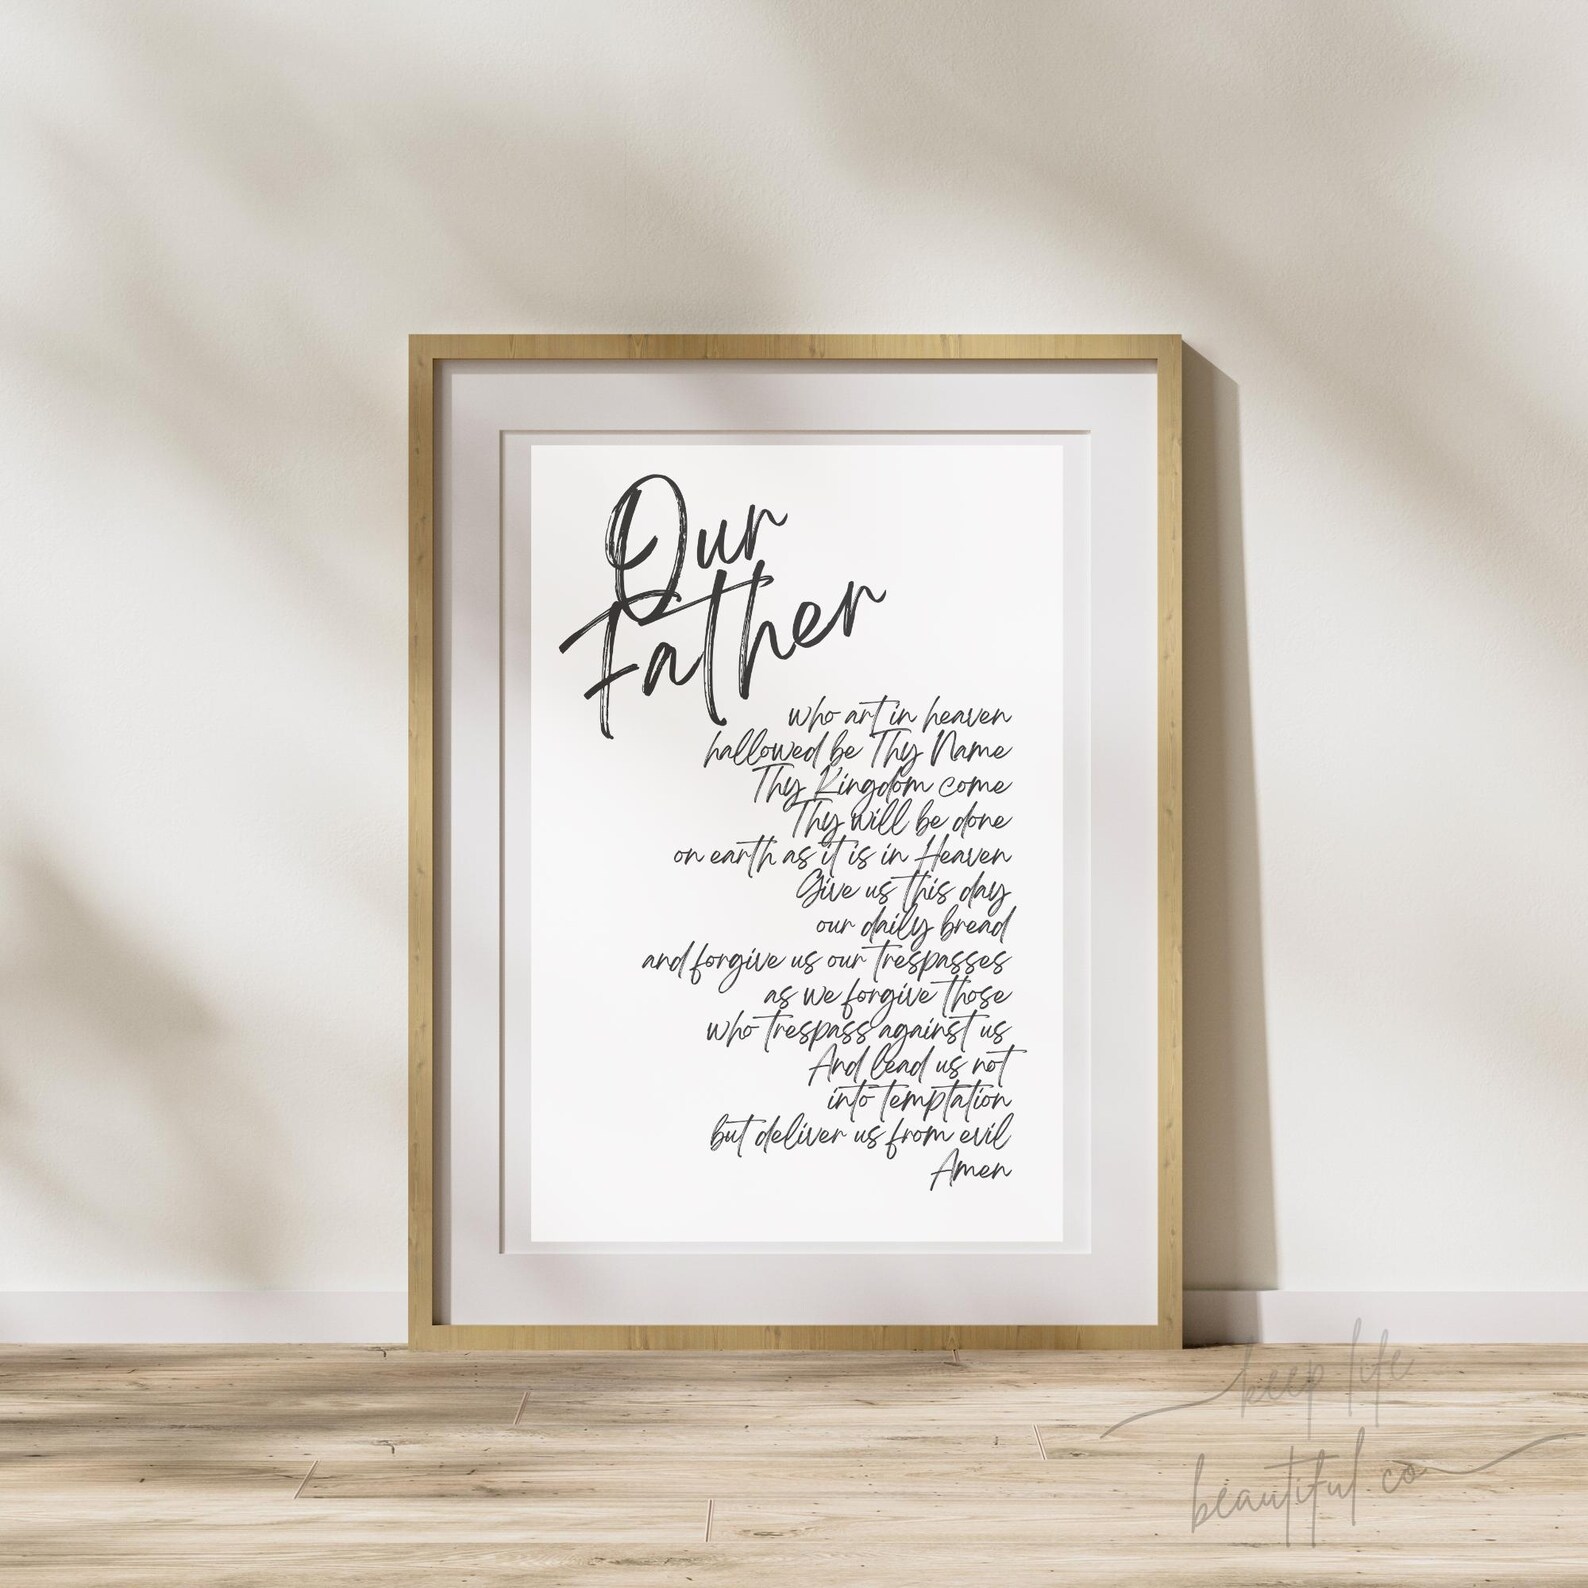 Our
Father
who art in heaven
hallowed be Thy Name
Thy Kingdom come
Thy will be done
on earth as it is in Heaven
Give us this day
our daily bread
and forgive us our trespasses
as we forgive those
who trespass against us
And lead us not
into temptation
but deliver us from evil
Amen
keep life
beautiful co